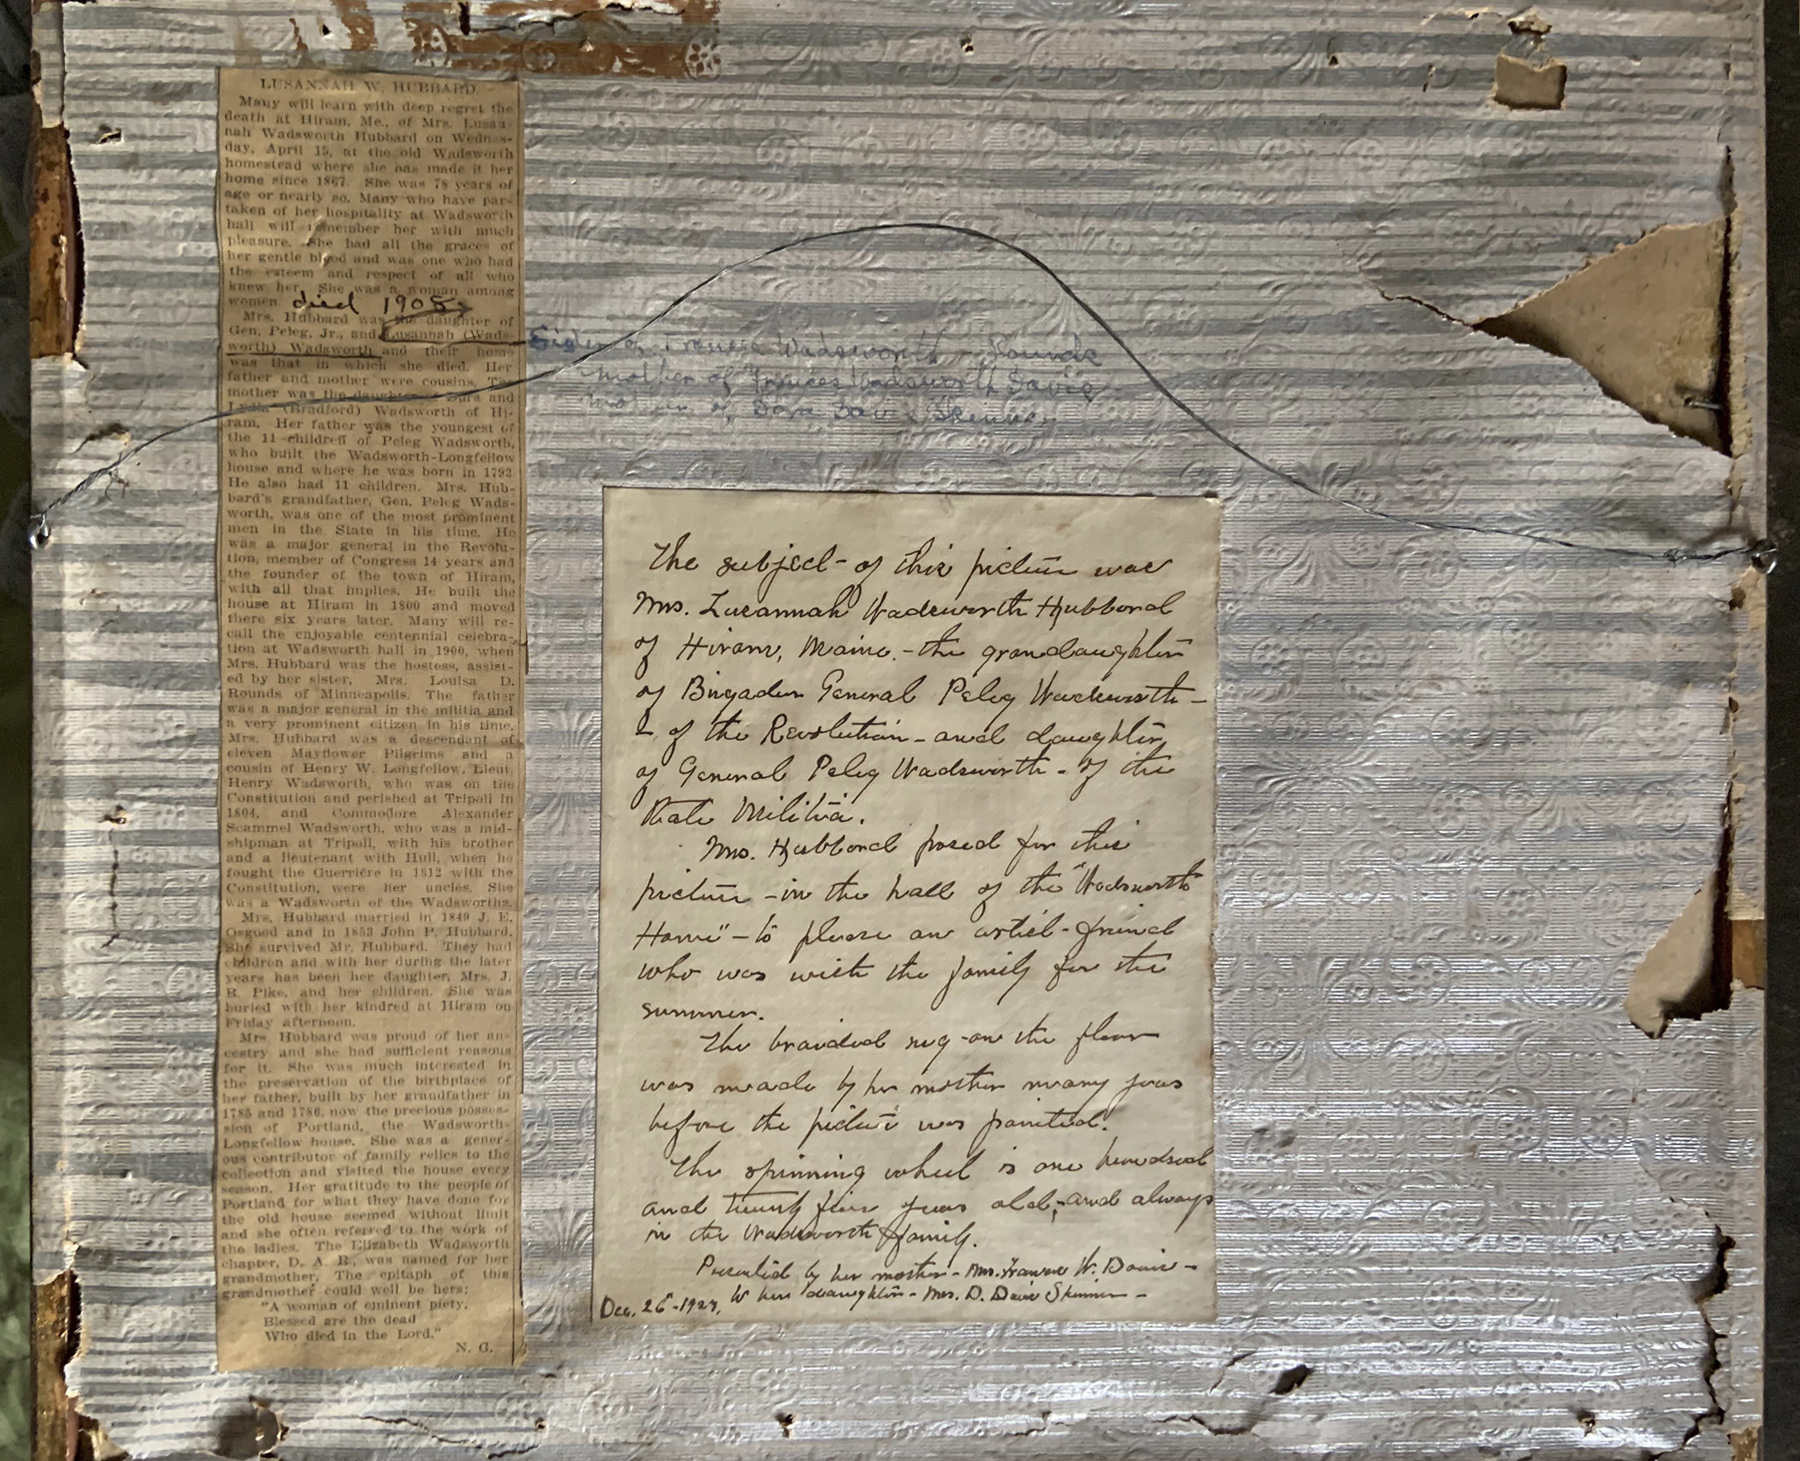 LUSANNAH W. HUBBARD.
Many will learn with deep regret the
death at Hiram, Me., of Mrs. Lusan-
nah Wadsworth Hubbard on Wednes-
day, April 15, at the old Wadsworth
homestead where she has made it her
home since 1867. She was 78 years of
age or nearly so. Many who have par-
taken of her hospitality at Wadsworth
hall will remember her with much
pleasure. She had all the graces of
her gentle blood and was one who had
the esteem and respect of all who
knew her. She was a woman among
women. died 1908
Mrs. Hubbard was the daughter of
Gen. Peleg, Jr., and Lusannah (Wads-
worth) Wadsworth and their home
was that in which she died. Her
father and mother were cousins. The
mother was the daughter of Dura and
Lydia (Bradford) Wadsworth of Hi-
ram. Her father was the youngest of
the 11 children of Peleg Wadsworth,
who built the Wadsworth-Longfellow
house and where he was born in 1793.
He also had 11 children. Mrs. Hub-
bard's grandfather, Gen. Peleg Wads-
worth, was one of the most prominent
men in the State in his time. He
was a major general in the Revolu-
tion, member of Congress 14 years and
the founder of the town of Hiram,
with all that implies. He built the
house at Hiram in 1800 and moved
there six years later. Many will re-
call the enjoyable centennial celebra-
tion at Wadsworth hall in 1900, when
Mrs. Hubbard was the hostess, assist-
ed by her sister, Mrs. Louisa D.
Rounds of Minneapolis. The father
was a major general in the militia and
a very prominent citizen in his time.
Mrs. Hubbard was a descendant of
eleven Mayflower Pilgrims and a
cousin of Henry W. Longfellow. Lieut.
Henry Wadsworth, who was on the
Constitution and perished at Tripoli in
1804, and Commodore Alexander
Scammel Wadsworth, who was a mid-
shipman at Tripoli, with his brother
and a lieutenant with Hull, when he
fought the Guerriere in 1812 with the
Constitution, were her uncles. She
was a Wadsworth of the Wadsworths.
Mrs. Hubbard married in 1849 J. E.
Osgood and in 1853 John P. Hubbard.
She survived Mr. Hubbard. They had
children and with her during the later
years has been her daughter, Mrs. J.
B. Pike, and her children. She was
buried with her kindred at Hiram on
Friday afternoon.
Mrs. Hubbard was proud of her an-
cestry and she had sufficient reasons
for it. She was much interested in
the preservation of the birthplace of
her father, built by her grandfather in
1785 and 1786, now the precious posses-
sion of Portland, the Wadsworth-
Longfellow house. She was a gener-
ous contributor of family relics to the
collection and visited the house every
season. Her gratitude to the people of
Portland for what they have done for
the old house seemed without limit
and she often referred to the work of
the ladies. The Elizabeth Wadsworth
chapter, D. A. R., was named for her
grandmother. The epitaph of this
grandmother could well be hers:
"A woman of eminent piety,
Blessed are the dead
Who died in the Lord."
N. G.
Sister of Wadsworth Rounds
mother of Frances Wadsworth Davis
Mother of Dora Davis Skinner
The subject - of this picture was
Mrs. Lusannah Wadsworth Hubbard
of Hiram, Maine. - the grandaughter
of Brigadier General Peleg Wadsworth -
of the Revolution - and daughter
of General Peleg Wadsworth - of the
State Militia.
Mrs. Hubbard posed for this
picture - in the hall of the "Wadsworth
Home" - to please an artist - friend
who was with the family for the
summer.
The braided rug - on the floor
was made by her mother many years
before the picture was painted.
The spinning wheel is one hundred
and twenty five years old; and always
in the Wadsworth family.
Presented by her mother - Mrs. Frances W. Davis -
Dec. 26 - 1927, to her daughter - Mrs. D. Davis Skinner -